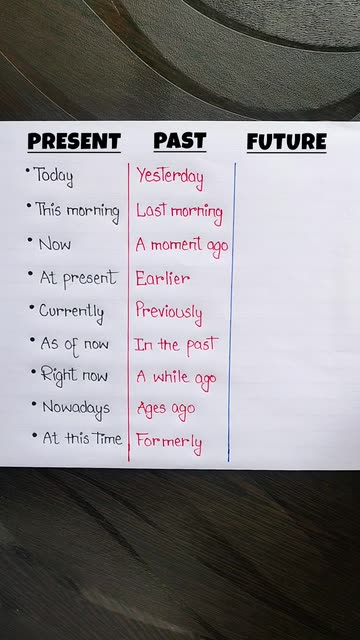 PRESENT PAST FUTURE
• Today Yesterday
• This morning Last morning
• Now A moment ago
• At present Earlier
• Currently Previously
• As of now In the past
• Right now A while ago
• Nowadays Ages ago
• At this Time Formerly